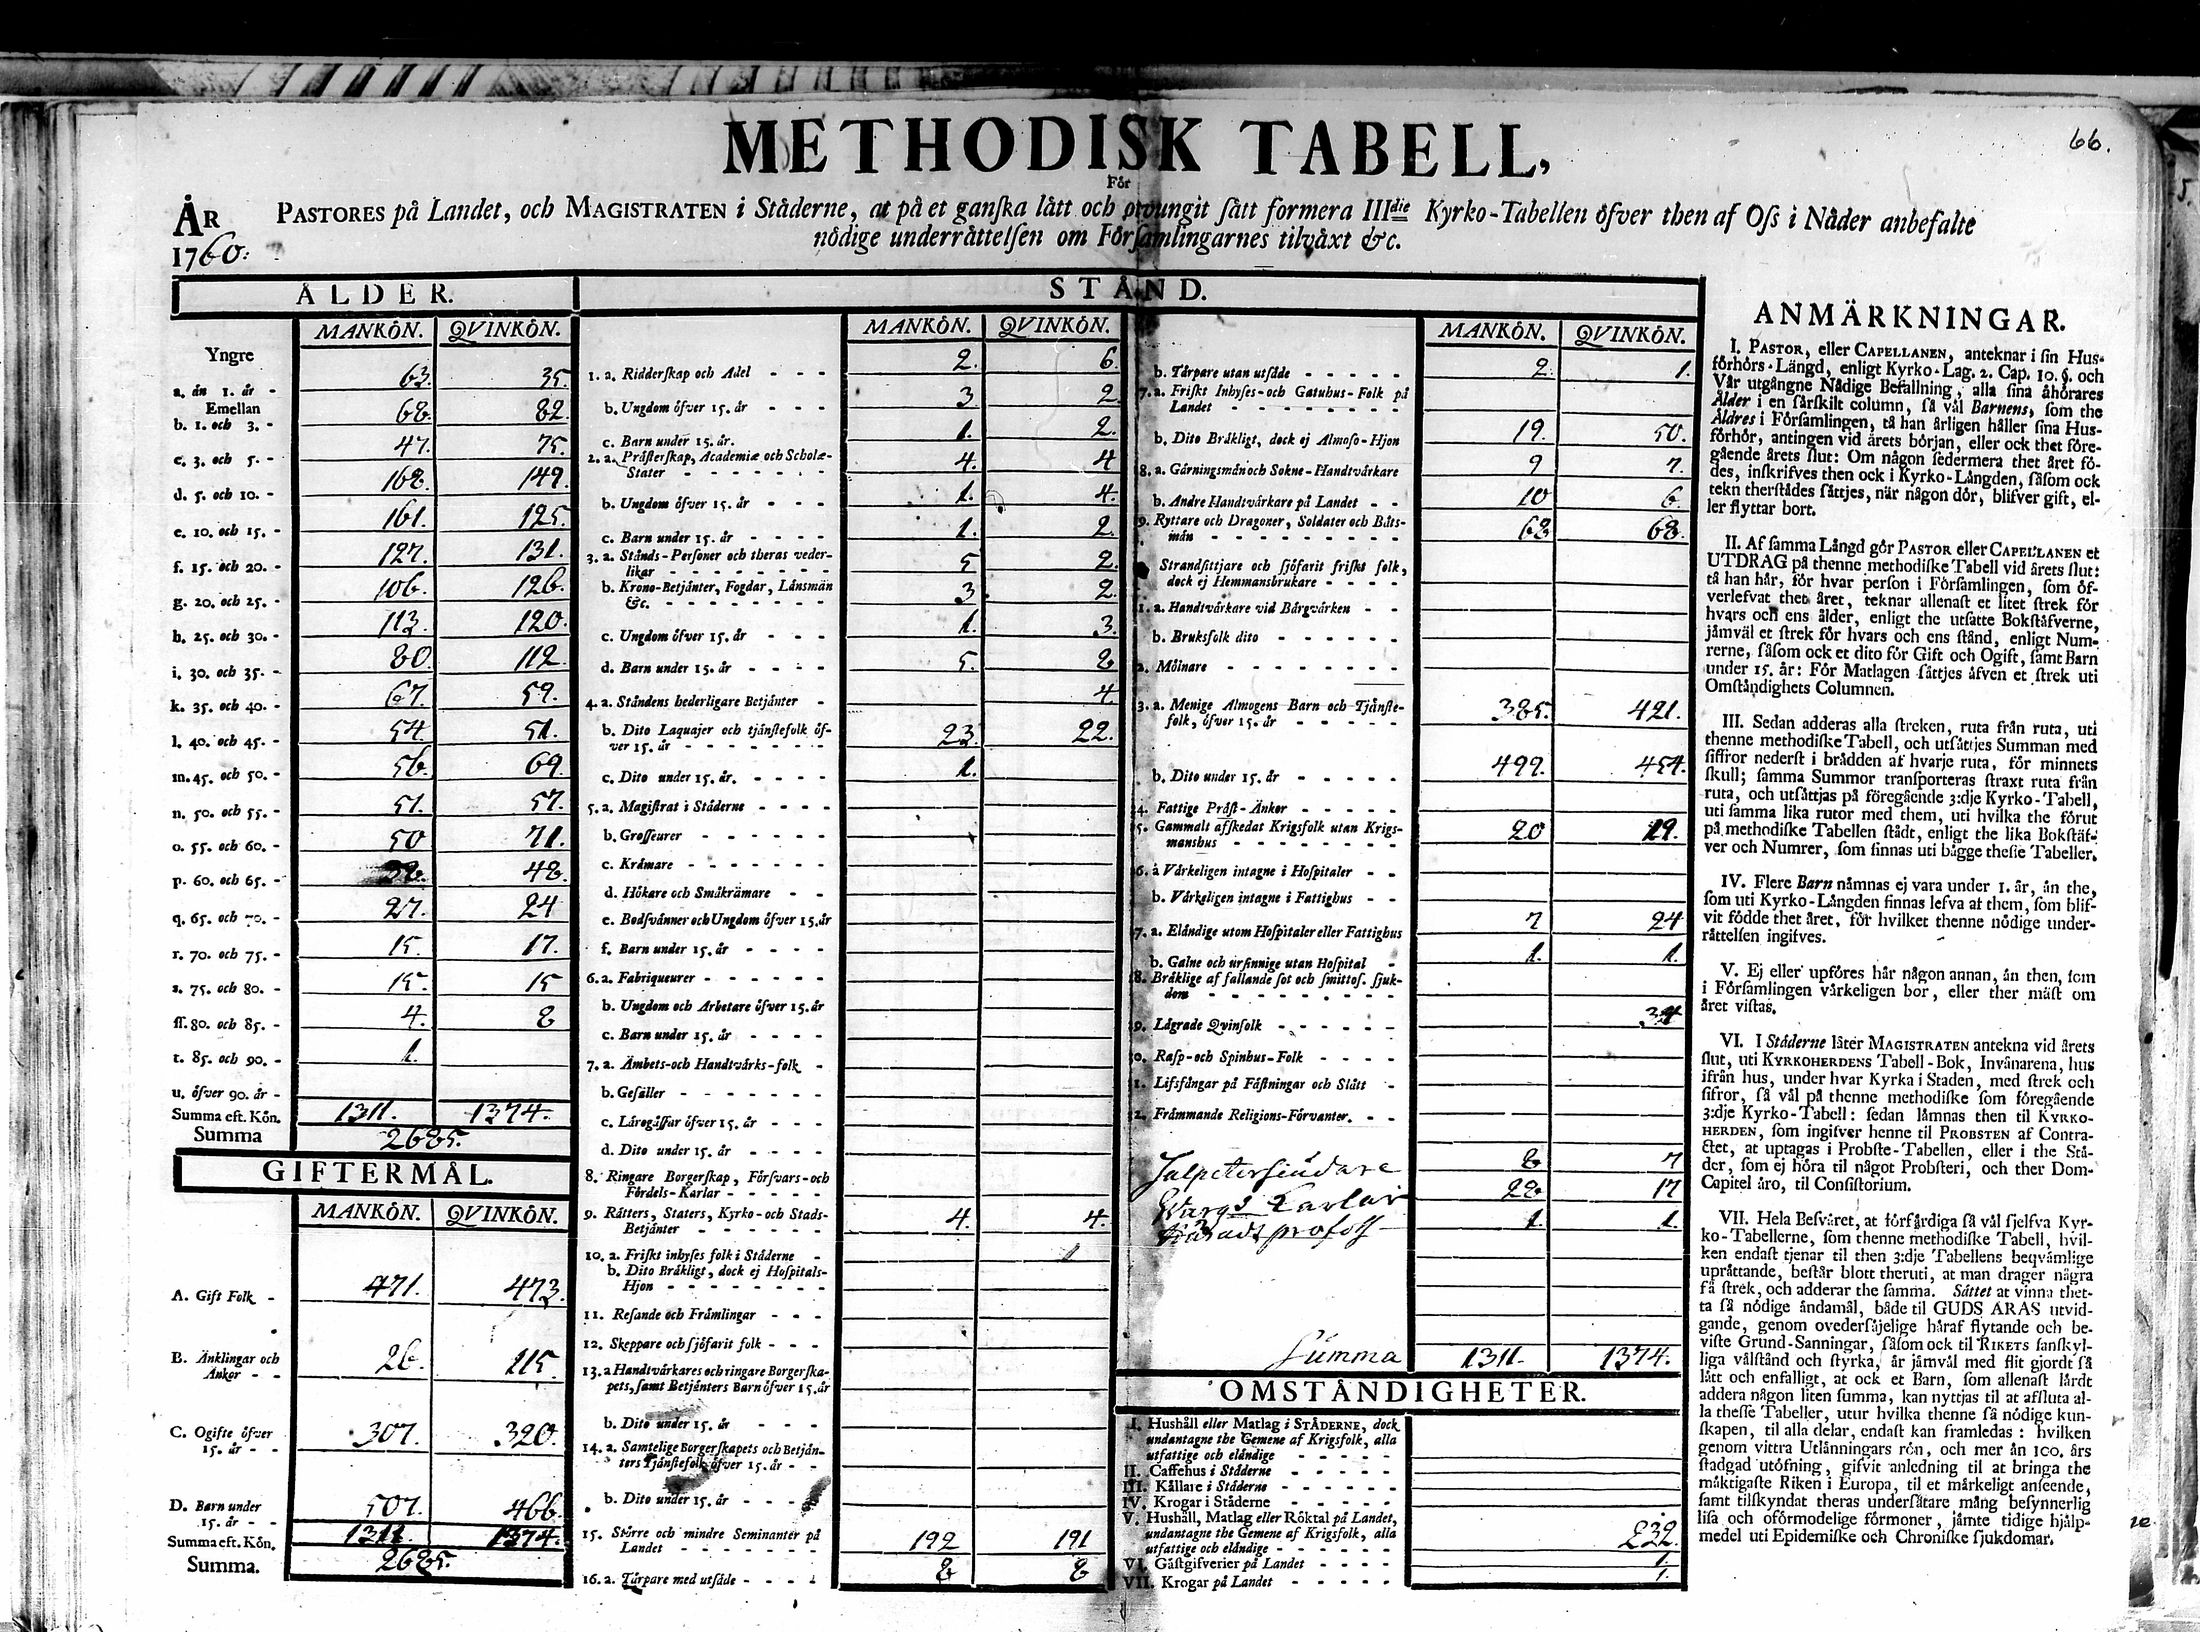 66.
METHODISK TABELL,
För
ÅR PASTORES på Landet, och MAGISTRATEN i Städerne, at på et ganſka lätt och otvungit ſätt formera IIIdie Kyrko-Tabellen öfver then af Oſs i Nåder anbefalte
1760: nödige underrättelſen om Förſamlingarnes tilväxt &c.
ÅLDER.
MANKÖN. QVINKÖN.
Yngre
a. än 1. år - 63. 35.
Emellan
b. 1. och 3. - 68. 82.
c. 3. och 5. - 47. 75.
d. 5. och 10. - 168. 149.
e. 10. och 15. - 161. 125.
f. 15. och 20. - 127. 131.
g. 20. och 25. - 106. 126.
h. 25. och 30. - 113. 120.
i. 30. och 35. - 80. 112.
k. 35. och 40. - 67. 59.
l. 40. och 45. - 54. 51.
m. 45. och 50. - 56. 69.
n. 50. och 55. - 51. 57.
o. 55. och 60. - 50 71.
p. 60. och 65. - 38. 48.
q. 65. och 70. - 27. 24
r. 70. och 75. - 15. 17.
s. 75. och 80. - 15. 15
ſſ. 80. och 85. - 4. 8
t. 85. och 90. - 1.
u. öfver 90. år -
Summa eft. Kön. 1311. 1374.
Summa 2685.
GIFTERMÅL.
MANKÖN. QVINKÖN.
A. Gift Folk - 471. 473.
B. Änklingar och
Änkor - - 26. 115.
C. Ogifte öfver
15. år - - 307. 320.
D. Barn under
15. år - - 507. 466.
Summa eft. Kön. 1311. 1374.
Summa. 2685.
STÅND.
MANKÖN. QVINKÖN.
1. a. Ridderſkap och Adel - - - 2. 6.
b. Ungdom öfver 15. år - - - 3 2
c. Barn under 15. år. 1. 2.
2. a. Präſterſkap, Academiæ och Scholæ-
Stater - - - - - - 4. 4
b. Ungdom öfver 15. år - - - 1. 4.
c. Barn under 15. år - - - - 1. 2.
3. a. Stånds-Perſoner och theras veder-
likar - - - - - - - 5 2.
b. Krono-Betjänter, Fogdar, Länsmän
&c. - - - - - - - - 3. 2.
c. Ungdom öfver 15. år - - - 1. 3.
d. Barn under 15. år - - - - 5. 8
4. a. Ståndens hederligare Betjänter - 4.
b. Dito Laquajer och tjänſtefolk öf-
ver 15. år - - - - - - - 23. 22.
c. Dito under 15. år. - - - - 1.
5. a. Magiſtrat i Städerne - - - -
b. Groſſeurer - - - - - -
c. Krämare - - - - - - -
d. Hökare och Småkrämare - -
e. Bodſvänner och Ungdom öfver 15. år
f. Barn under 15. år - - - - -
6. a. Fabriqueurer - - - - - -
b. Ungdom och Arbetare öfver 15. år
c. Barn under 15. år - - - - -
7. a. Ämbets-och Handtvärks-folk -
b. Geſäller - - - - - - -
c. Lärogåſſar öfver 15. år - - -
d. Dito under 15. år - - - -
8. Ringare Borgerſkap, Förſvars-och
Fördels-Karlar - - - - -
9. Rätters, Staters, Kyrko-och Stads-
Betjänter - - - - - - 4. 4.
10. a. Friſkt inhyſes folk i Städerne -
b. Dito Bräkligt, dock ej Hoſpitals-
Hjon - - - - - - -
11. Reſande och Främlingar - - -
12. Skeppare och ſjöfarit folk - - -
13. a Handtvärkares och ringare Borgerſka-
pets, ſamt Betjänters Barn öfver 15. år
b. Dito under 15. år - - -
14. a. Samtelige Borgerſkapets och Betjän-
ters Tjänſtefolk öfver 15. år - -
b. Dito under 15. år - - - -
15. Större och mindre Seminanter på
Landet - - - - - - - 192 191
16. a. Tårpare med utſäde - - - - 8 8
MANKÖN. QVINKÖN.
b. Tårpare utan utſäde - - - - - 2. 1.
7. a. Friſkt Inhyſes-och Gatuhus-Folk på
Landet - - - - - - - -
b. Dito Bräkligt, dock ej Almoſo-Hjon 19. 50.
8. a. Gärningsmän och Sokne-Handtvärkare 9 7.
b. Andre Handtvärkare på Landet - - 10 6.
9. Ryttare och Dragoner, Soldater och Båts-
män - - - - - - - - - 68 68.
Strandſittjare och ſjöfarit friſkt folk,
dock ej Hemmansbrukare - - - -
1. a. Handtvärkare vid Bärgvärken - -
b. Bruksfolk dito - - - - - -
2. Mölnare - - - - - - - -
3. a. Menige Almogens Barn och Tjänſte-
folk, öfver 15. år - - - - - 385. 421.
b. Dito under 15. år - - - - - 499. 454.
14. Fattige Präſt-Änkor - - - - -
15. Gammalt afſkedat Krigsfolk utan Krigs-
manshus - - - - - - - - 20 19.
16. a Värkeligen intagne i Hoſpitaler - -
b. Värkeligen intagne i Fattighus - -
7. a. Eländige utom Hoſpitaler eller Fattighus 7 24
b. Galne och urſinnige utan Hoſpital - 1. 1.
18. Bräklige af fallande ſot och ſmittoſ. ſjuk-
dom - - - - - - - -
19. Lägrade Qvinfolk - - - - - - 34
0. Raſp-och Spinhus-Folk - - - -
1. Lifsfångar på Fäſtningar och Slått -
2. Främmande Religions-Förvanter. - -
Salpetersiudare 8 7
Wargs Karlar 28 17
Häradz profoss 1. 1.
Summa 1311. 1374.
OMSTÄNDIGHETER.
I. Hushåll eller Matlag i STÄDERNE, dock
undantagne the Gemene af Krigsfolk, alla
utfattige och eländige - - - - -
II. Caffehus i Städerne - - - - -
III. Källare i Städerne - - - - -
IV. Krogar i Städerne - - - - -
V. Hushåll, Matlag eller Röktal på Landet,
undantagne the Gemene af Krigsfolk, alla
utfattige och eländige - - - - - - 232.
VI. Gäſtgifverier på Landet - - - - 1.
VII. Krogar på Landet - - - - - 1.
ANMÄRKNINGAR.
I. PASTOR, eller CAPELLANEN, anteknar i ſin Hus-
förhörs-Längd, enligt Kyrko-Lag. 2. Cap. 10. §. och
Vår utgångne Nådige Befallning, alla ſina åhörares
Ålder i en ſärſkilt column, ſå väl Barnens, ſom the
Äldres i Förſamlingen, tå han årligen håller ſina Hus-
förhör, antingen vid årets början, eller ock thet före-
gående årets ſlut: Om någon ſedermera thet året fö-
des, inſkrifves then ock i Kyrko-Längden, ſåſom ock
tekn therſtädes ſättjes, när någon dör, blifver gift, el-
ler flyttar bort.
II. Af ſamma Längd gör PASTOR eller CAPELLANEN et
UTDRAG på thenne methodiſke Tabell vid årets ſlut:
tå han här, för hvar perſon i Förſamlingen, ſom öf-
verlefvat thet året, teknar allenaſt et litet ſtrek för
hvars och ens ålder, enligt the utſatte Bokſtäfverne,
jämväl et ſtrek för hvars och ens ſtånd, enligt Num-
rerne, ſåſom ock et dito för Gift och Ogift, ſamt Barn
under 15. år: För Matlagen ſättjes äfven et ſtrek uti
Omſtändighets Columnen.
III. Sedan adderas alla ſtreken, ruta från ruta, uti
thenne methodiſke Tabell, och utſättjes Summan med
ſiffror nederſt i brädden af hvarje ruta, för minnets
ſkull; ſamma Summor tranſporteras ſtraxt ruta från
ruta, och utſättjas på föregående 3:dje Kyrko-Tabell,
uti ſamma lika rutor med them, uti hvilka the förut
på methodiſke Tabellen ſtådt, enligt the lika Bokſtäf-
ver och Numrer, ſom finnas uti bägge theſſe Tabeller.
IV. Flere Barn nämnas ej vara under 1. år, än the,
ſom uti Kyrko-Längden finnas lefva af them, ſom blif-
vit födde thet året, för hvilket thenne nödige under-
rättelſen ingifves.
V. Ej eller upföres här någon annan, än then, ſom
i Förſamlingen värkeligen bor, eller ther mäſt om
året viſtas.
VI. I Städerne låter MAGISTRATEN antekna vid årets
ſlut, uti KYRKOHERDENS Tabell-Bok, Invånarena, hus
ifrån hus, under hvar Kyrka i Staden, med ſtrek och
ſifror, ſå väl på thenne methodiſke ſom föregående
3:dje Kyrko-Tabell: ſedan lämnas then til KYRKO-
HERDEN, ſom ingifver henne til PROBSTEN af Contra-
ctet, at uptagas i Probſte-Tabellen, eller i the Stä-
der, ſom ej höra til något Probſteri, och ther Dom-
Capitel äro, til Conſiſtorium.
VII. Hela Beſväret, at förfärdiga ſå väl ſjelfva Kyr-
ko-Tabellerne, ſom thenne methodiſke Tabell, hvil-
ken endaſt tjenar til then 3:dje Tabellens beqvämlige
uprättande, beſtår blott theruti, at man drager några
få ſtrek, och adderar the ſamma. Sättet at vinna thet-
ta ſå nödige ändamål, både til GUDS ÄRAS utvid-
gande, genom ovederſäjelige häraf flytande och be-
viſte Grund-Sanningar, ſåſom ock til RIKETS ſanſkyl-
liga välſtånd och ſtyrka, är jämväl med flit gjordt ſå
lätt och enfalligt, at ock et Barn, ſom allenaſt lärdt
addera någon liten ſumma, kan nyttjas til at affluta al-
la theſſe Tabeller, utur hvilka thenne ſå nödige kun-
ſkapen, til alla delar, endaſt kan framledas: hvilken
genom vittra Utlänningars rön, och mer än 100. års
ſtadgad utöfning, gifvit anledning til at bringa the
mäktigaſte Riken i Europa, til et märkeligt anſeende,
ſamt tilſkyndat theras underſåtare mång beſynnerlig
liſa och oförmodelige förmoner, jämte tidige hjälp-
medel uti Epidemiſke och Chroniſke ſjukdomar.